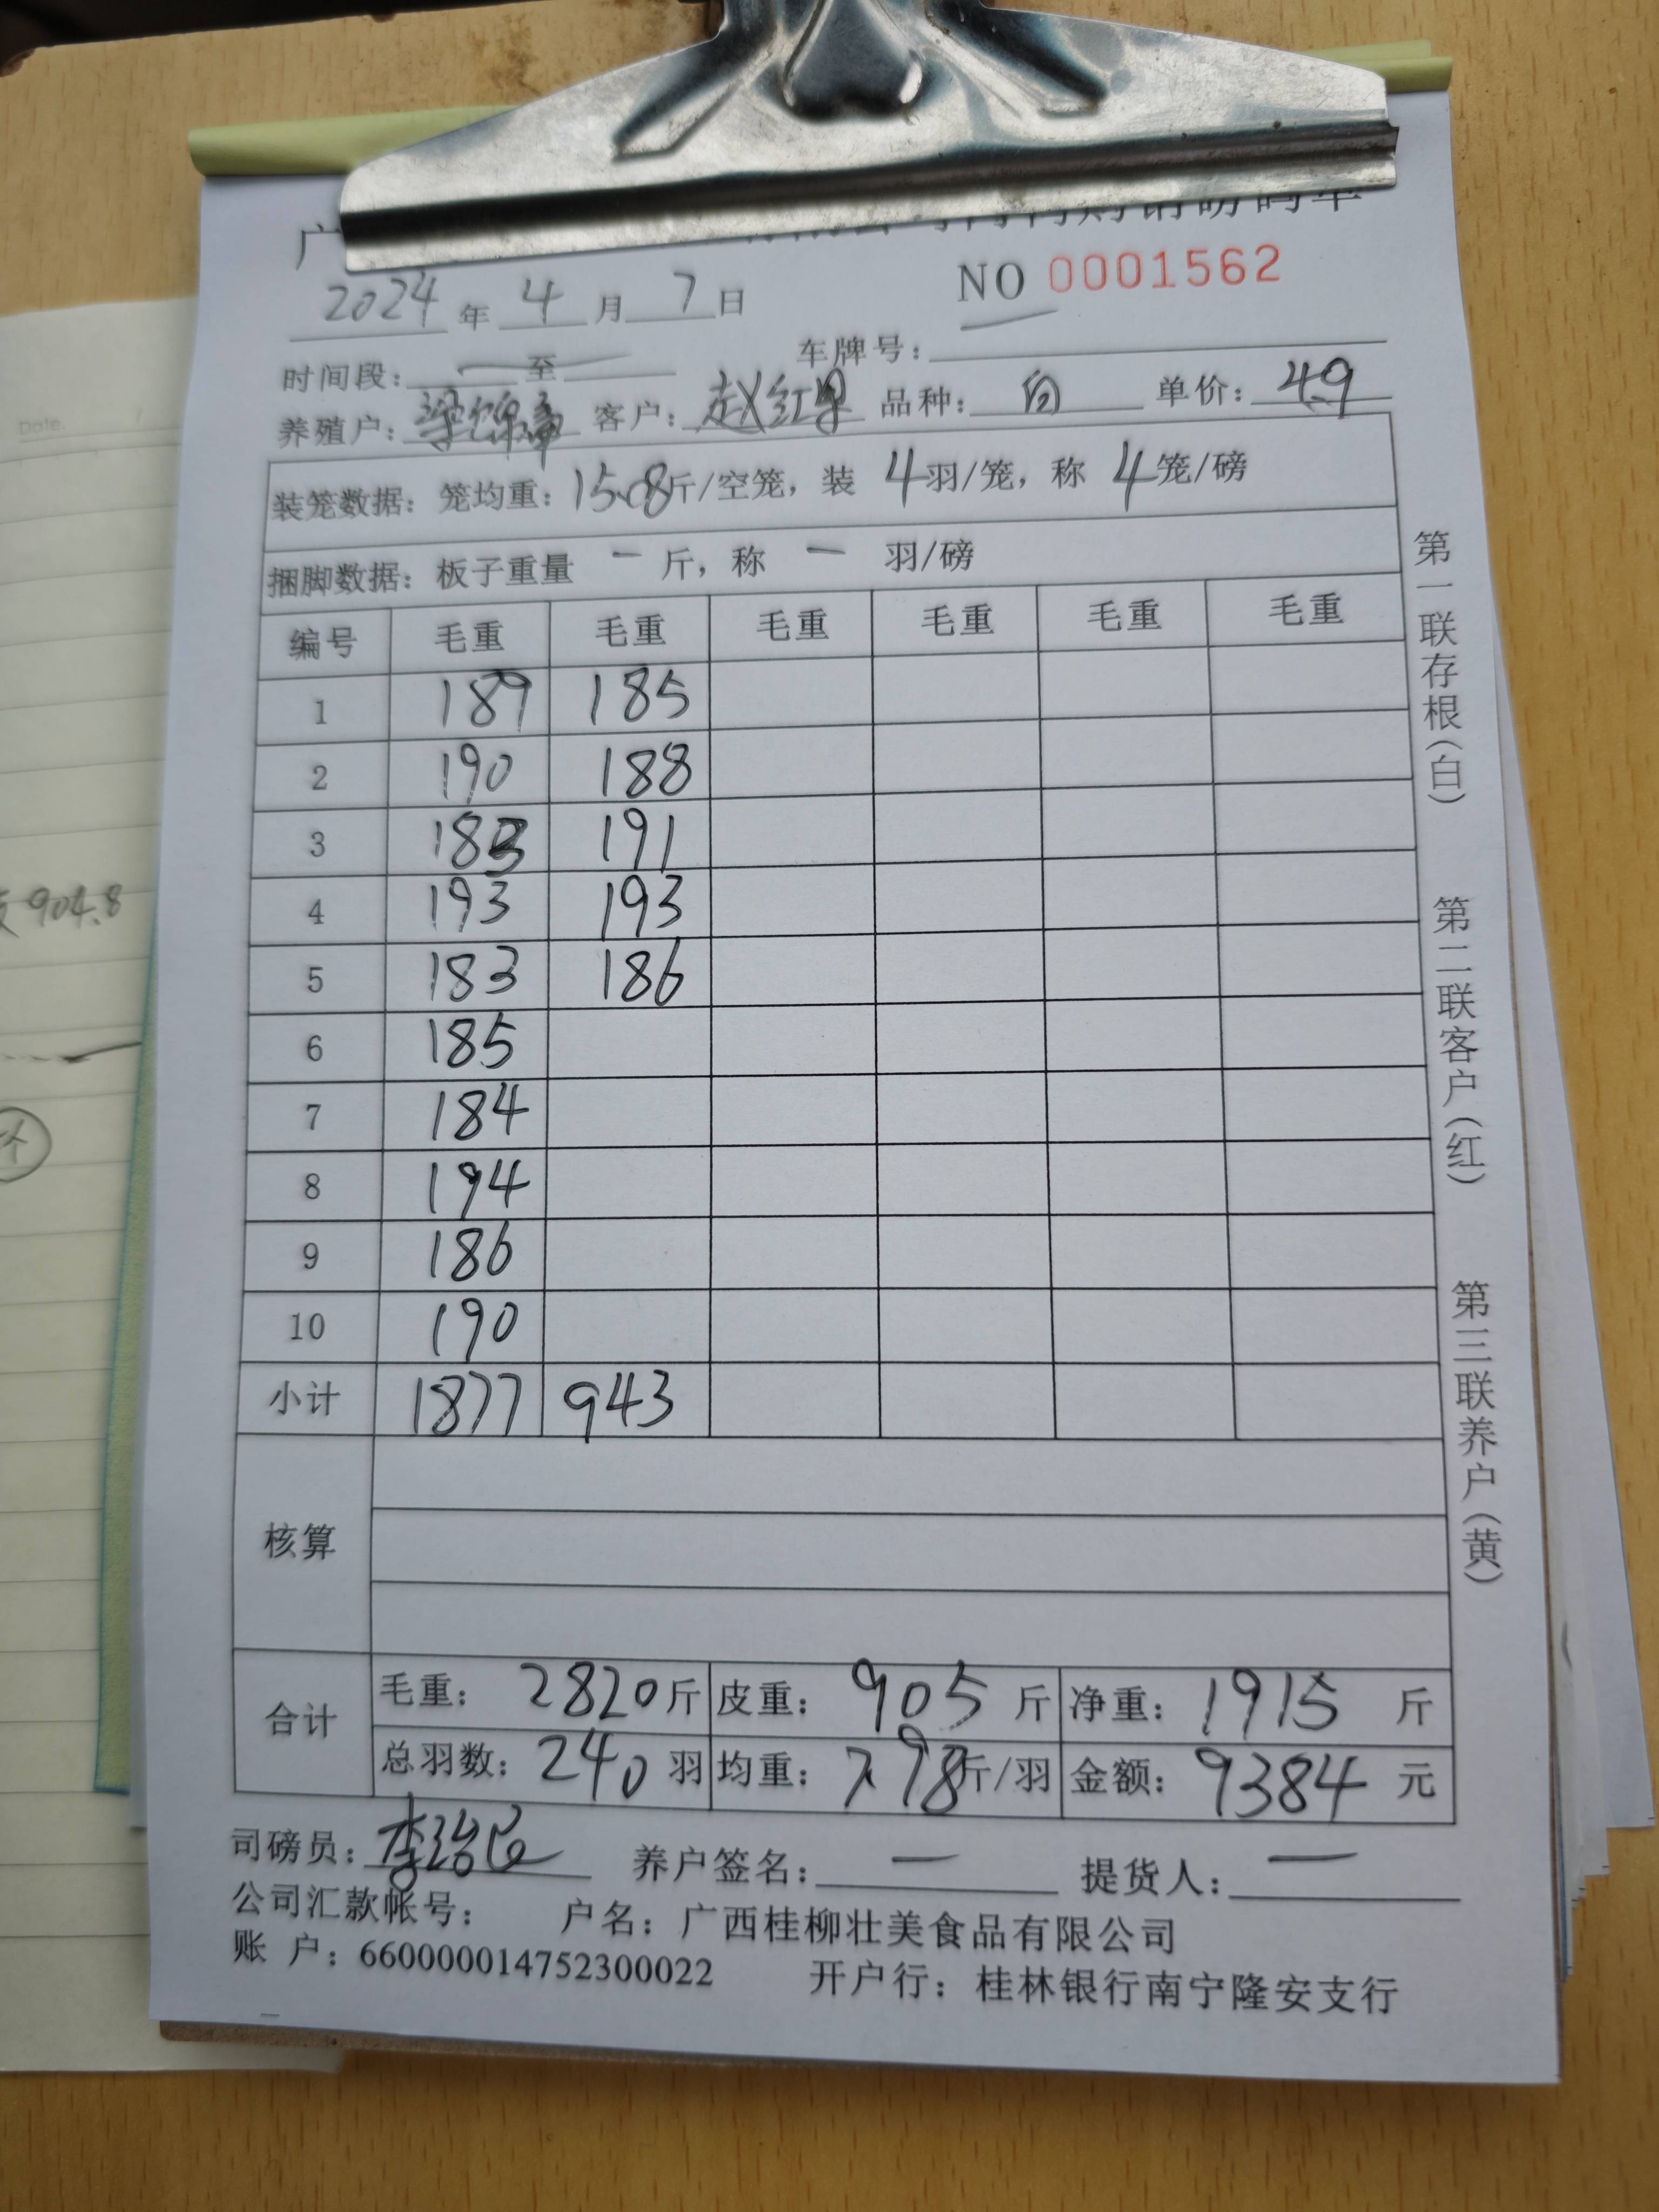 广
2024 年 4 月 7 日 NO 0001562
时间段: — 至 — 车牌号:
养殖户: 客户: 赵红果 品种: 白 单价: 4.9
装笼数据: 笼均重: 15.08斤/空笼, 装 4羽/笼, 称 4笼/磅
捆脚数据: 板子重量 一 斤, 称 一 羽/磅
编号 毛重 毛重 毛重 毛重 毛重 毛重
1 189 185
2 190 188
3 183 191
4 193 193
5 183 186
6 185
7 184
8 194
9 186
10 190
小计 1877 943
核算
合计 毛重: 2820斤 皮重: 905斤 净重: 1915 斤
总羽数: 240 羽 均重: 7.98斤/羽 金额: 9384 元
司磅员: 李治 养户签名: — 提货人: —
公司汇款帐号: 户名: 广西桂柳壮美食品有限公司
账 户: 660000014752300022 开户行: 桂林银行南宁隆安支行
第一联存根(白) 第二联客户(红) 第三联养户(黄)
Date.
904.8
个